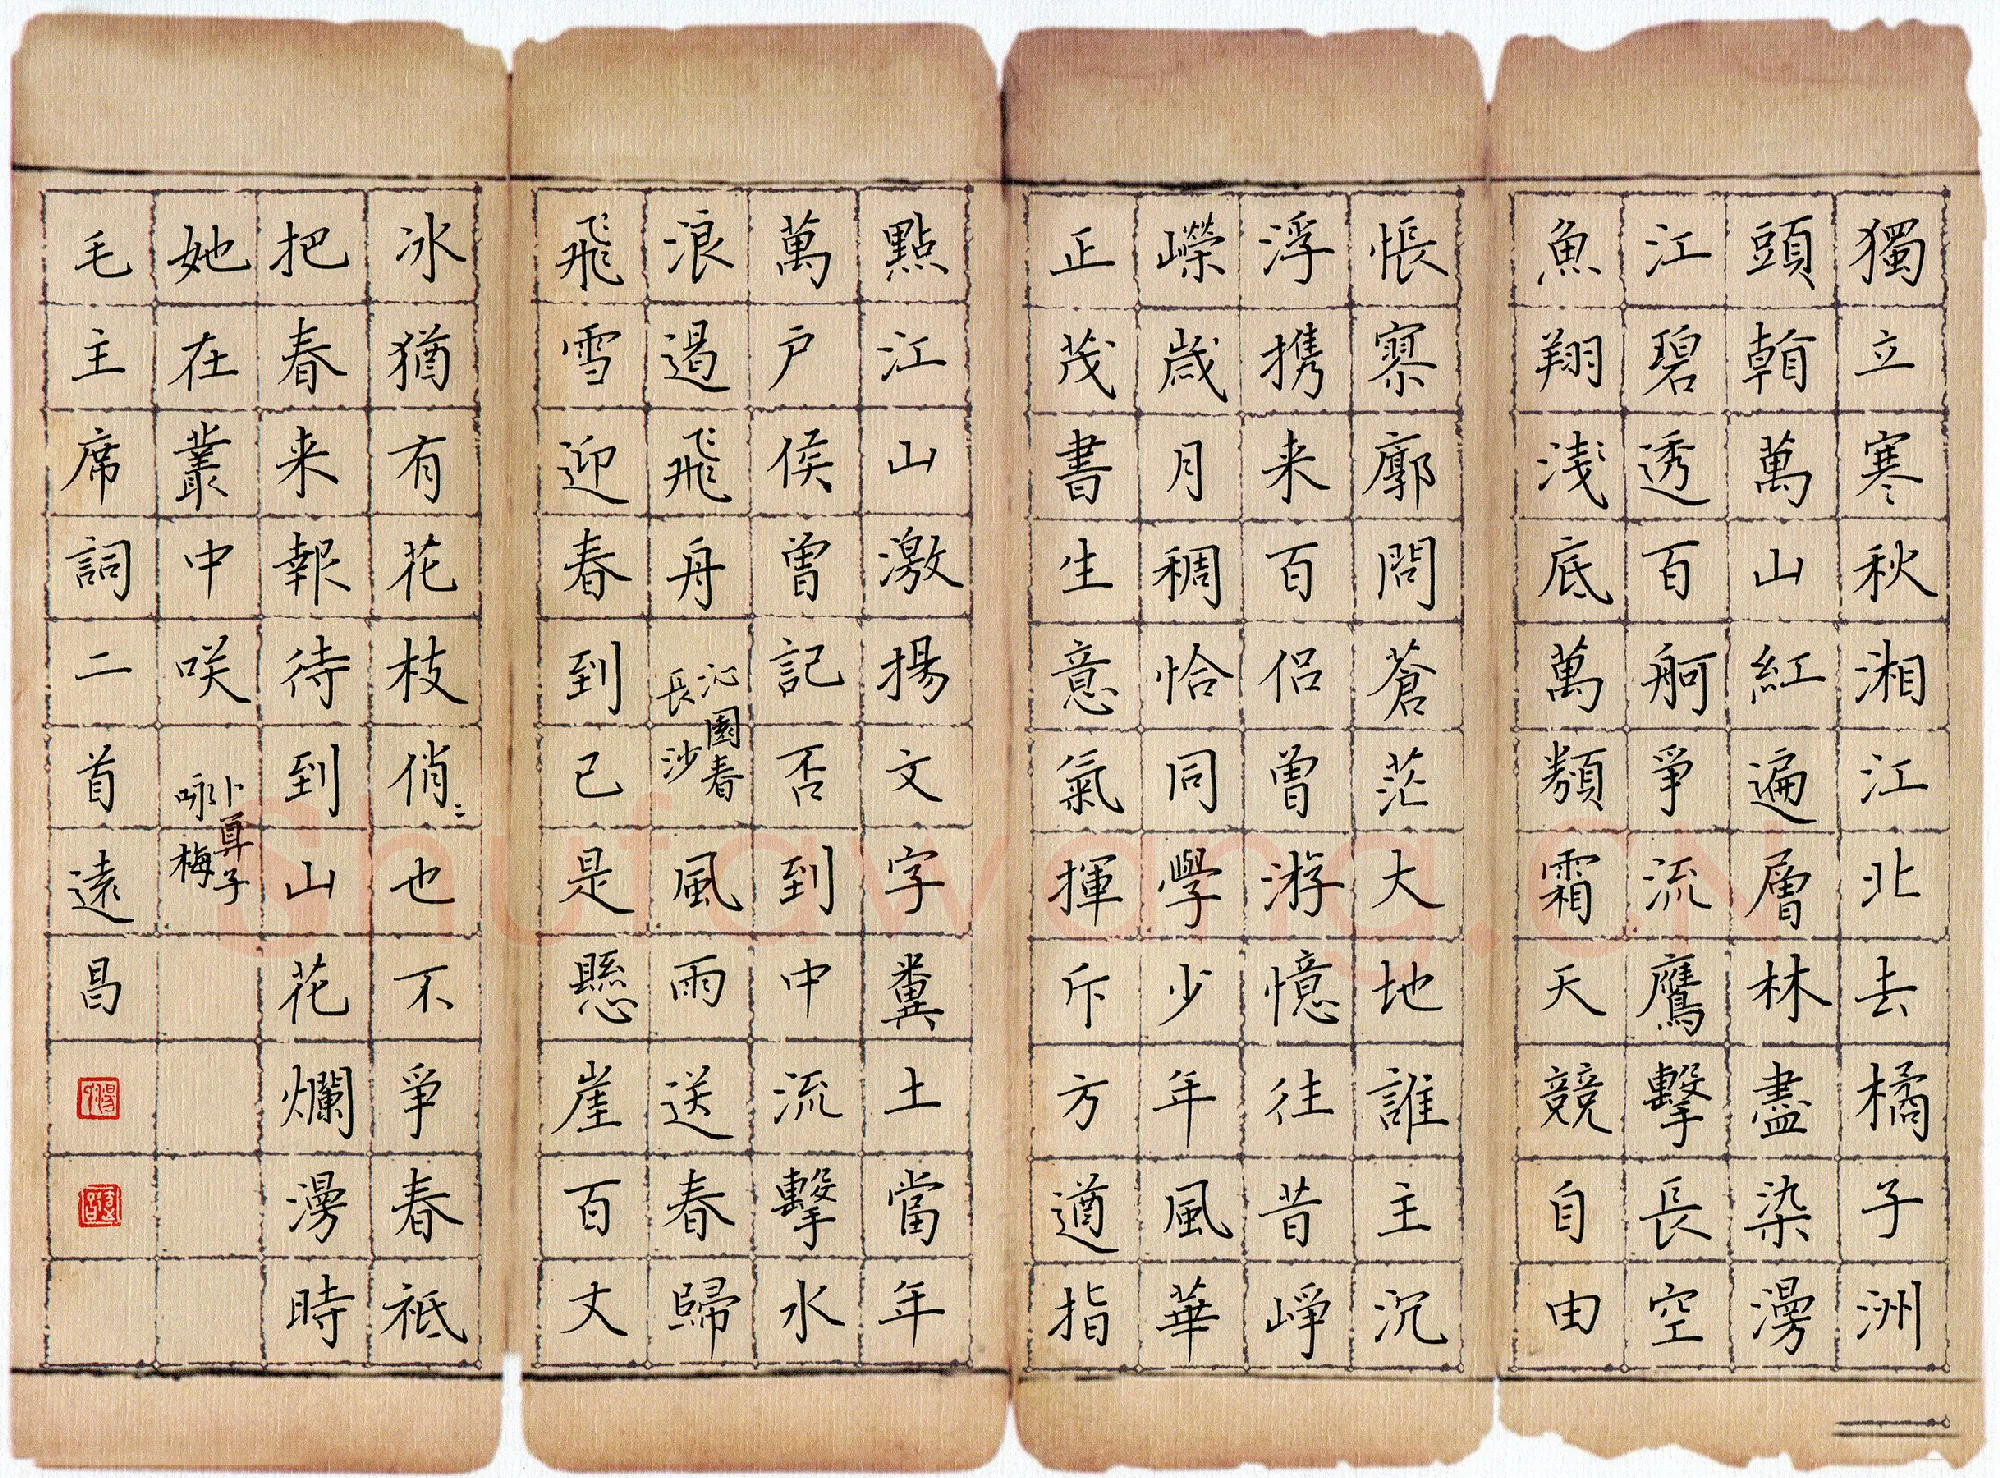 獨立寒秋湘江北去橘子洲
頭看萬山紅遍層林盡染漫
江碧透百舸爭流鷹擊長空
魚翔淺底萬類霜天競自由
悵寥廓問蒼茫大地誰主沉
浮携来百侣曾游憶往昔崢
嶸歲月稠恰同學少年風華
正茂書生意氣揮斥方遒指
點江山激揚文字糞土當年
萬户侯曾記否到中流擊水
浪遏飛舟 沁園春 長沙 風雨送春歸
飛雪迎春到已是懸崖百丈
冰猶有花枝俏〻也不爭春祇
把春来報待到山花爛漫時
她在叢中咲 卜算子 咏梅
毛主席詞二首遠昌
Shufawang.cn